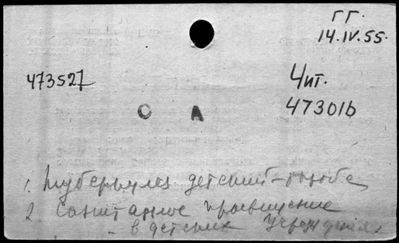 ГГ.
14.IV.55.
473527
Чит.
47301b
С А
1. Туберкулез детский - борьба
2 Санитарное просвещение
- в детских учреждениях